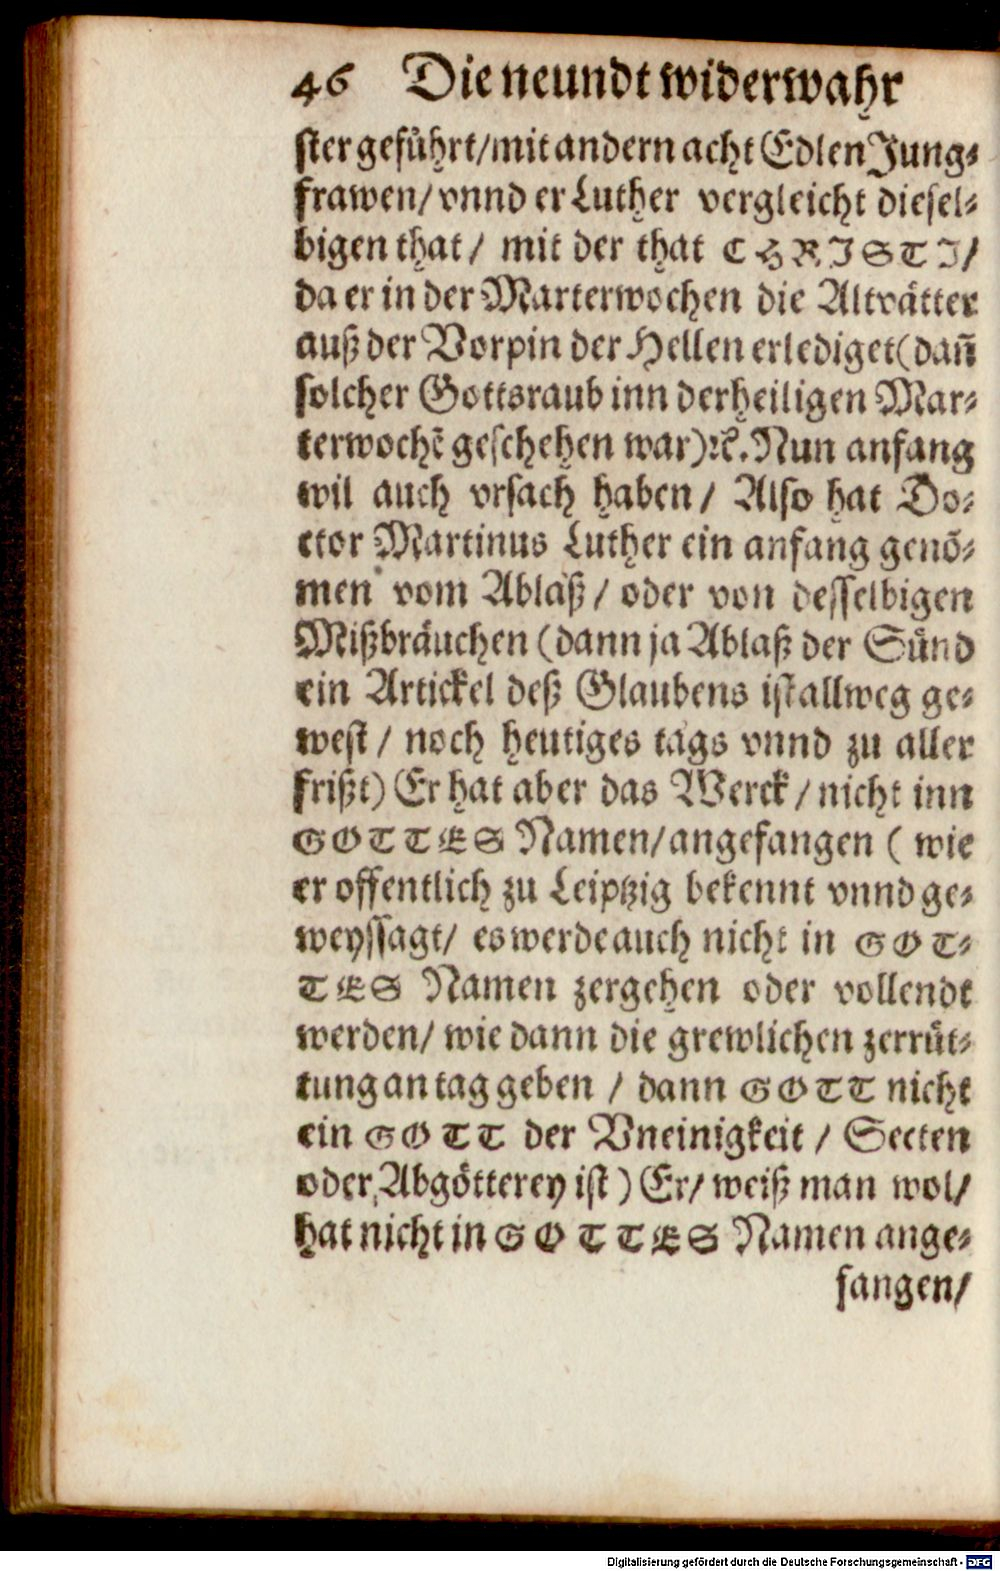 46 Die neundt widerwahr
ster geführt/mit andern acht Edlen Jung⸗
frawen/ vnnd er Luther vergleicht diesel⸗
bigen that/ mit der that CHRISTI/
da er in der Marterwochen die Altvätter
auß der Vorpin der Hellen erlediget(dañ
solcher Gottsraub inn der heiligen Mar⸗
terwochẽ geschehen war)ꝛc. Nun anfang
wil auch vrsach haben/ Also hat Do⸗
ctor Martinus Luther ein anfang genõ⸗
men vom Ablaß/ oder von desselbigen
Mißbräuchen (dann ja Ablaß der Sünd
ein Artickel deß Glaubens ist allweg ge⸗
west/ noch heutiges tags vnnd zu aller
frißt) Er hat aber das Werck/ nicht inn
GOTTES Namen/angefangen ( wie
er offentlich zu Leiptzig bekennt vnnd ge⸗
weyssagt/ es werde auch nicht in GOT⸗
TES Namen zergehen oder vollendt
werden/ wie dann die grewlichen zerrüt⸗
tung an tag geben / dann GOTT nicht
ein GOTT der Vneinigkeit / Secten
oder Abgötterey ist ) Er/ weiß man wol/
hat nicht in GOTTES Namen ange⸗
fangen/
Digitalisierung gefördert durch die Deutsche Forschungsgemeinschaft - DFG